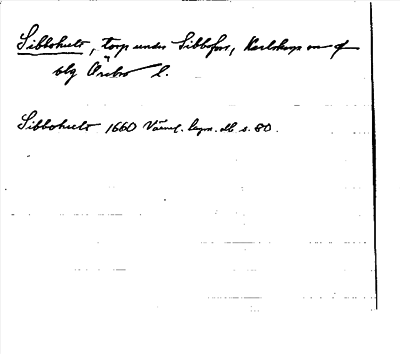 Sibbohult, torp under Sibbofors, Karlskoga sn o
Örebro l.
Sibbohult 1660 Värml. lagm. db s. 80.